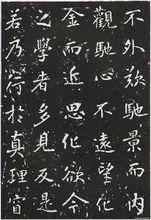 不外馳景而内
觀馳心不遠望化
金而近思化欲令
之學者多見反是
若乃行於真理